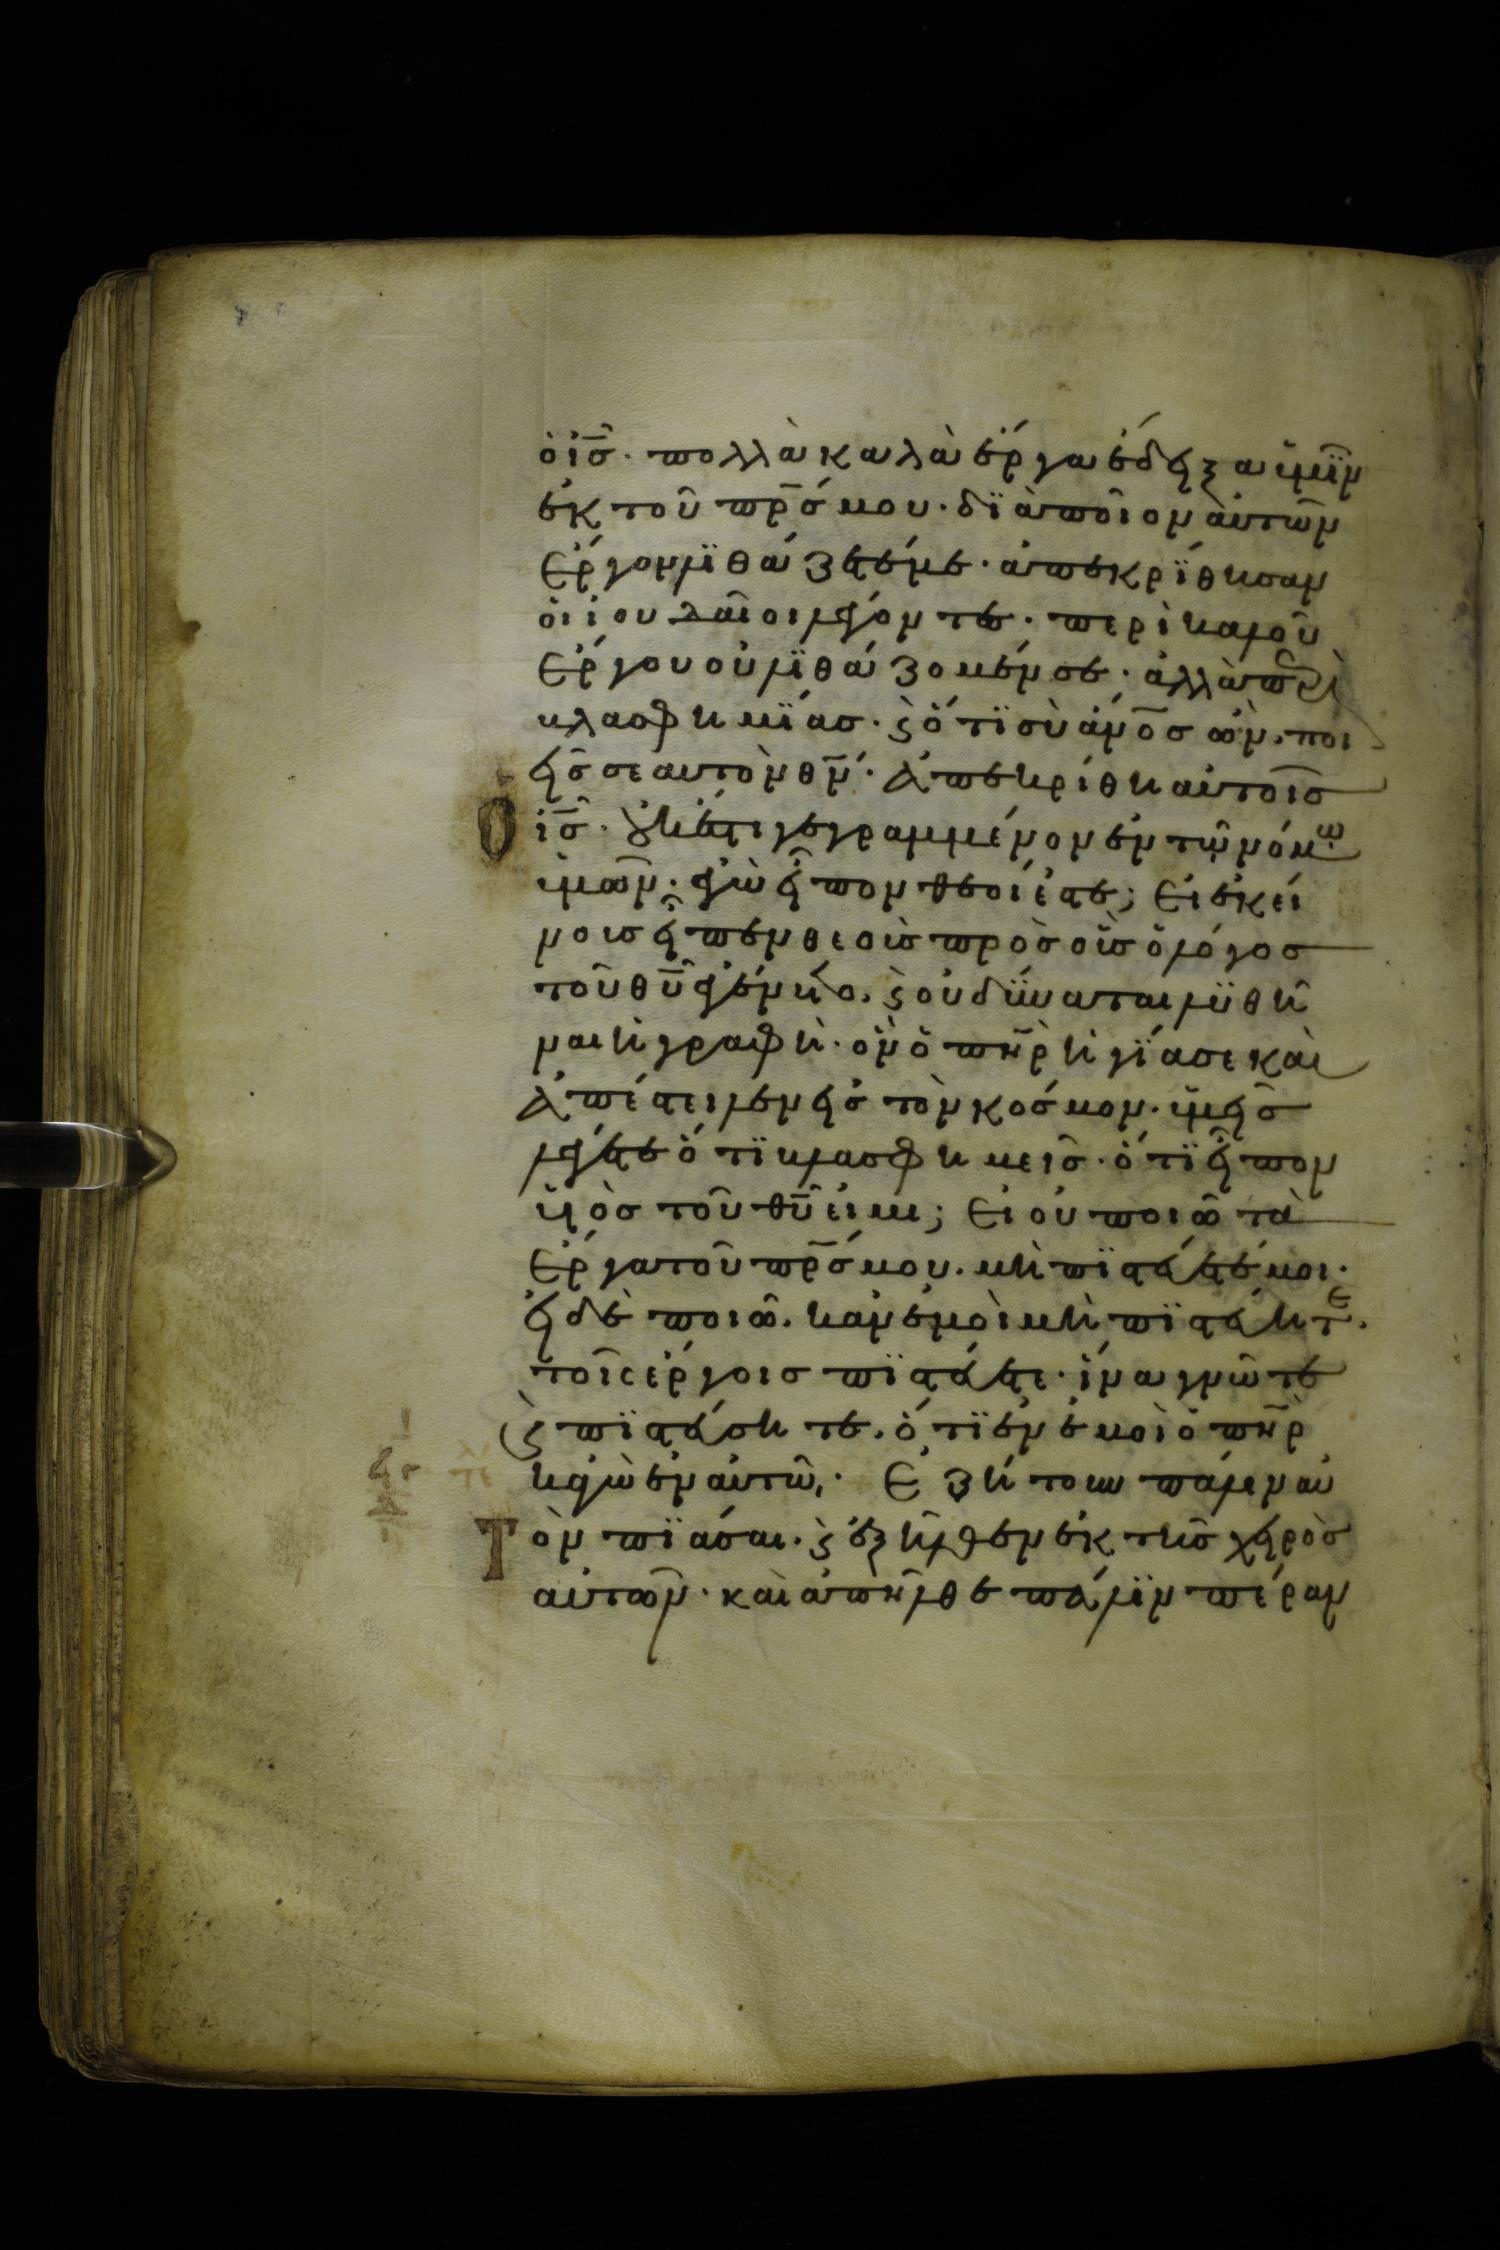 ὁ ισ̅· πολλὰ καλὰ ἔργα ἔδειξα ὑμῖν
ἐκ τοῦ πρ̅σ μου· διὰ ποῖον ἀυτῶν
ἔργον λϊθάζετέ με· ἀπεκρίθησαν
ὁι ἰουδαῖοι λέγοντες· περὶ καλοῦ
ἔργου οὐ λϊθάζομέν σε· ἀλλὰ περὶ
βλασφημϊάσ· ϗ ὅτϊ σὺ ἄν̅οσ ὢν. ποι
εῖσ σεαυτὸν θν̅· Ἀπεκρίθη αὐτοῖσ
Ὁ ισ̅· οὐκ ἔστι γεγραμμένον ἐν τῶ νόμω
ὑμῶν· ἐγὼ εἶπον θεοί ἐστε; Εἰ ἐκεί
νουσ εἶπεν θεοὺσ πρὸσ οὓσ ὁ λόγοσ
τοῦ θυ̅ ἐγένετο. ϗ οὐ δύναται λϋθῆ
ναι ἡ γραφή· ὃν ὁ πηρ̅ ἡγΐασε καὶ
ἀπέστειλεν εἰσ τὸν κόσμον· ὑμεῖσ
λέγετε ὅτϊ βλασφημεῖσ· ὅτϊ εἶπον
ὑϊὸσ τοῦ θυ̅ εἰμι; Εἰ οὐ ποιῶ τὰ
ἔργα τοῦ πρ̅σ μου. μὴ πϊστέυετέ μοι·
εἰ δὲ ποιῶ. κἂν ἐμοὶ μὴ πϊστέυητε.
τοῖσ ἔργοισ πϊστέυσατε· ἵνα γνῶτε
ϗ πϊστέυσητε. ὅτϊ ἐν ἐμοὶ ὁ πηρ̅
κἀγὼ ἐν ἀυτῶ· Ἐζήτουν πάλιν αὐ
Τὸν πϊάσαι· ϗ ἐξῆλθεν ἐκ τῆσ χειρὸσ
αὐτῶν· καὶ ἀπῆλθε πάλϊν πέραν